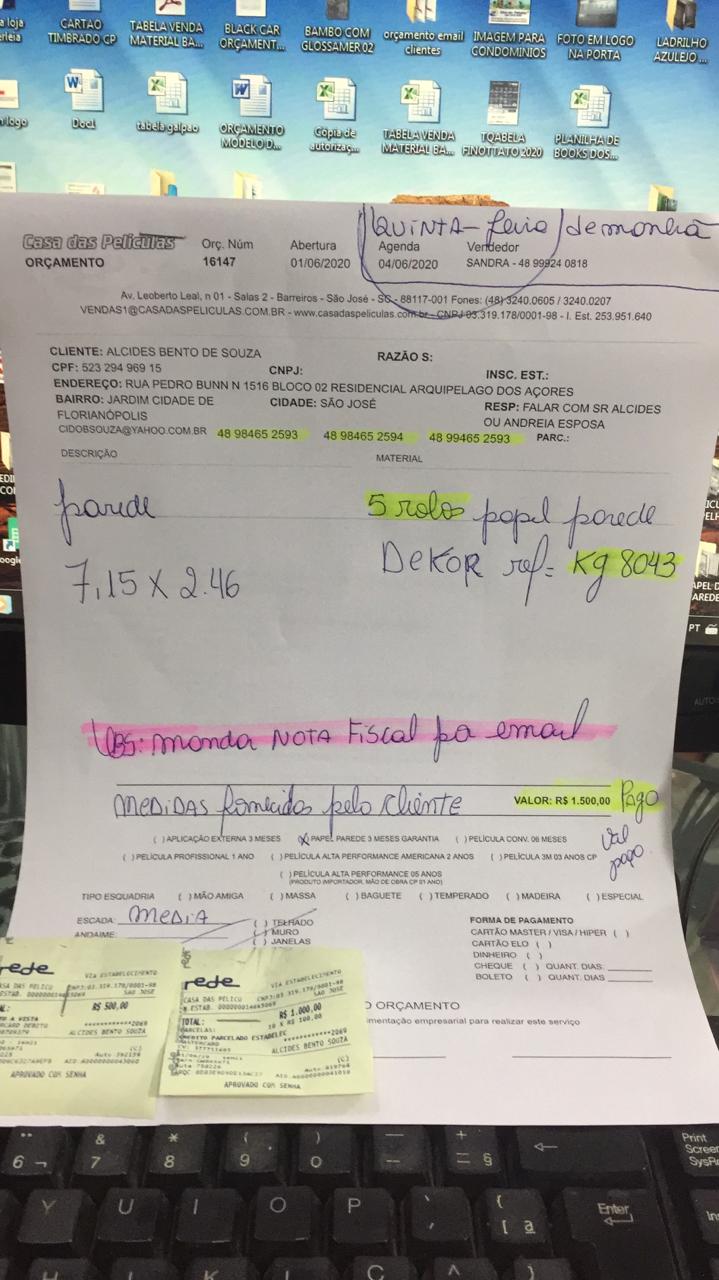 CARTAO
TIMBRADO CP
TABELA VENDA
MATERIAL BA...
BLACK CAR
ORÇAMENT...
BAMBO COM
GLOSSAMER 02
orçamento email
clientes
IMAGEM PARA
CONDOMINIOS
FOTO EM LOGO
NA PORTA
LADRILHO
AZULEJO ...
Doc1
tabela galpao
ORÇAMENTO
MODELO D...
Copia de
autorizaç...
TABELA VENDA
MATERIAL BA...
TQABELA
FINOTTATO 2020
PLANILHA DE
BOOKS DOS...
QUINTA-feira de manhã
Casa das Películas
ORÇAMENTO
Orç. Núm
16147
Abertura
01/06/2020
Agenda
04/06/2020
Vendedor
SANDRA - 48 99924 0818
Av. Leoberto Leal, n 01 - Salas 2 - Barreiros - São José - SC - 88117-001 Fones: (48) 3240.0605 / 3240.0207
VENDAS1@CASADASPELICULAS.COM.BR - www.casadaspeliculas.com.br - CNPJ 03.319.178/0001-98 - I. Est. 253.951.640
CLIENTE: ALCIDES BENTO DE SOUZA RAZÃO S:
CPF: 523 294 969 15 CNPJ: INSC. EST.:
ENDEREÇO: RUA PEDRO BUNN N 1516 BLOCO 02 RESIDENCIAL ARQUIPELAGO DOS AÇORES
BAIRRO: JARDIM CIDADE DE FLORIANÓPOLIS CIDADE: SÃO JOSÉ RESP: FALAR COM SR ALCIDES OU ANDREIA ESPOSA
CIDOBSOUZA@YAHOO.COM.BR 48 98465 2593 48 98465 2594 48 99465 2593 PARC.:
DESCRIÇÃO MATERIAL
parede 5 rolos papel parede
7,15 X 2.46 DEKOR ref= Kg 8043
OBS: manda NOTA Fiscal pa email
MEDIDAS fornecidos pelo cliente VALOR: R$ 1.500,00 Pago
Val pago
( ) APLICAÇÃO EXTERNA 3 MESES (X) PAPEL PAREDE 3 MESES GARANTIA ( ) PELÍCULA CONV. 06 MESES
( ) PELÍCULA PROFISSIONAL 1 ANO ( ) PELÍCULA ALTA PERFORMANCE AMERICANA 2 ANOS ( ) PELÍCULA 3M 03 ANOS CP
( ) PELÍCULA ALTA PERFORMANCE 05 ANOS
(PRODUTO IMPORTADOR, MÃO DE OBRA CP 01 ANO)
TIPO ESQUADRIA ( ) MÃO AMIGA ( ) MASSA ( ) BAGUETE ( ) TEMPERADO ( ) MADEIRA ( ) ESPECIAL
ESCADA: MEDIA
ANDAIME:
( ) TELHADO
( ) MURO
( ) JANELAS
FORMA DE PAGAMENTO
CARTÃO MASTER / VISA / HIPER ( )
CARTÃO ELO ( )
DINHEIRO ( )
CHEQUE ( ) QUANT. DIAS:
BOLETO ( ) QUANT. DIAS
O ORÇAMENTO
imentação empresarial para realizar este serviço
rede
VIA ESTABELECIMENTO
CNPJ:03.319.178/0001-98
SAO JOSE
R$ 500,00
ALCIDES BENTO SOUZA
APROVADO COM SENHA
rede
VIA ESTABELECIMENTO
CASA DAS PELICU CNPJ:03.319.178/0001-98
SAO JOSE
TOTAL: R$ 1.000,00
PARCELAS: 10 X R$ 100,00
CREDITO PARCELADO ESTABELEC
MASTERCARD ************2069
ALCIDES BENTO SOUZA
APROVADO COM SENHA
PT
Print
Screen
SysR
6 7 8 9 0
Y U I O P
Enter